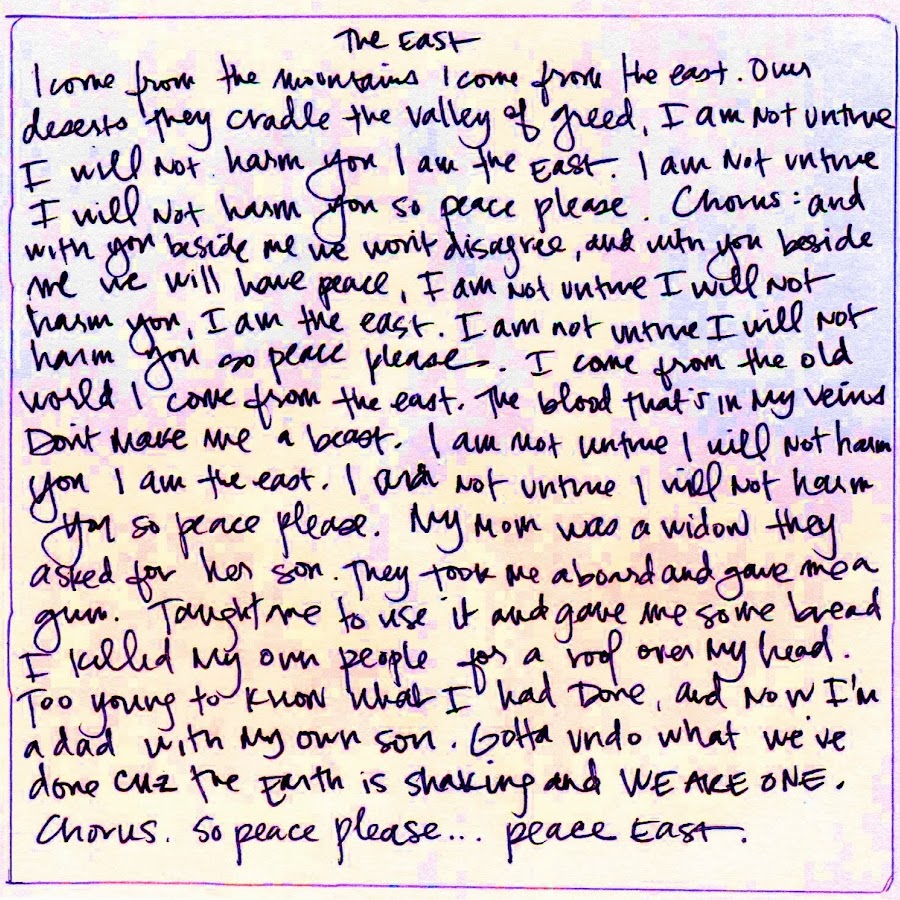 The East
I come from the mountains I come from the east. Our
deserts they cradle the valley of greed, I am not untrue
I will not harm you I am the East. I am not untrue
I will not harm you so peace please. Chorus: and
with you beside me we won't disagree, and with you beside
me we will have peace, I am not untrue I will not
harm you, I am the east. I am not untrue I will not
harm you so peace please. I come from the old
world I come from the east. The blood that's in my veins
Don't make me a beast. I am not untrue I will not harm
you I am the east. I am not untrue I will not harm
you so peace please. My mom was a widow they
asked for her son. They took me aboard and gave me a
gun. Taught me to use it and gave me some bread
I killed my own people for a roof over my head.
Too young to know what I had Done, and now I'm
a dad with my own son. Gotta undo what we've
done cuz the Earth is shaking and WE ARE ONE.
Chorus. So peace please... peace East.